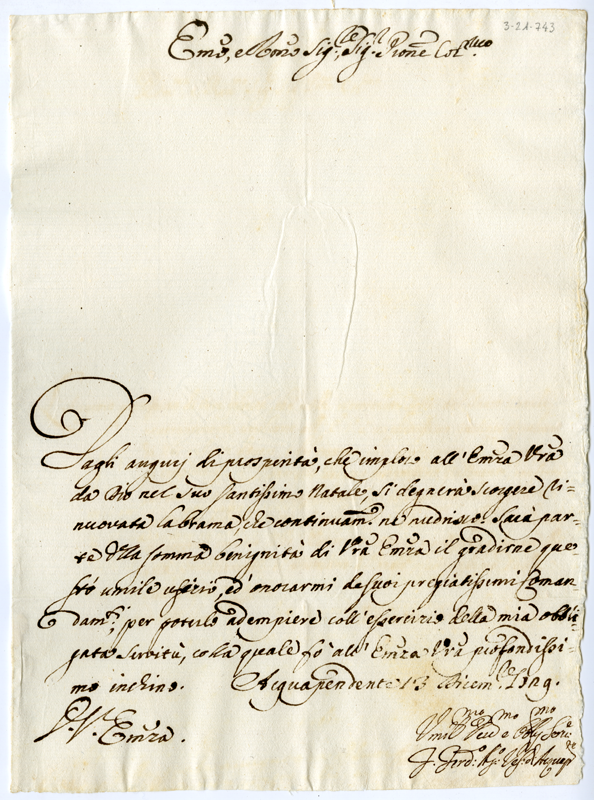 3-21-743
Em.o, e Rev.mo Sig.re Sig.r P̃rone Col.mo
Dagli augurj di prosperità, che imploro all'Em̃za Vr̃a
da Dio nel suo Santissimo Natale, si degnerà scorgere ri=
nuovata la brama che continuam.te ne nudrisco. Sarà par=
te della somma benignità di Vr̃a Em̃za il gradirne que=
sto umile ufizio, ed' onorarmi de suoi pregiatissimi Coman=
dam.ti, per poterlo adempiere coll'essercizio della mia obbli=
gata servitù, colla quale fo' all' Em̃za Vr̃a profondissi=
mo inchino. Acquapendente 13 Dicem.re
V.ra Em̃za.
Umil.mo Dev.mo e Obb.mo Ser.re